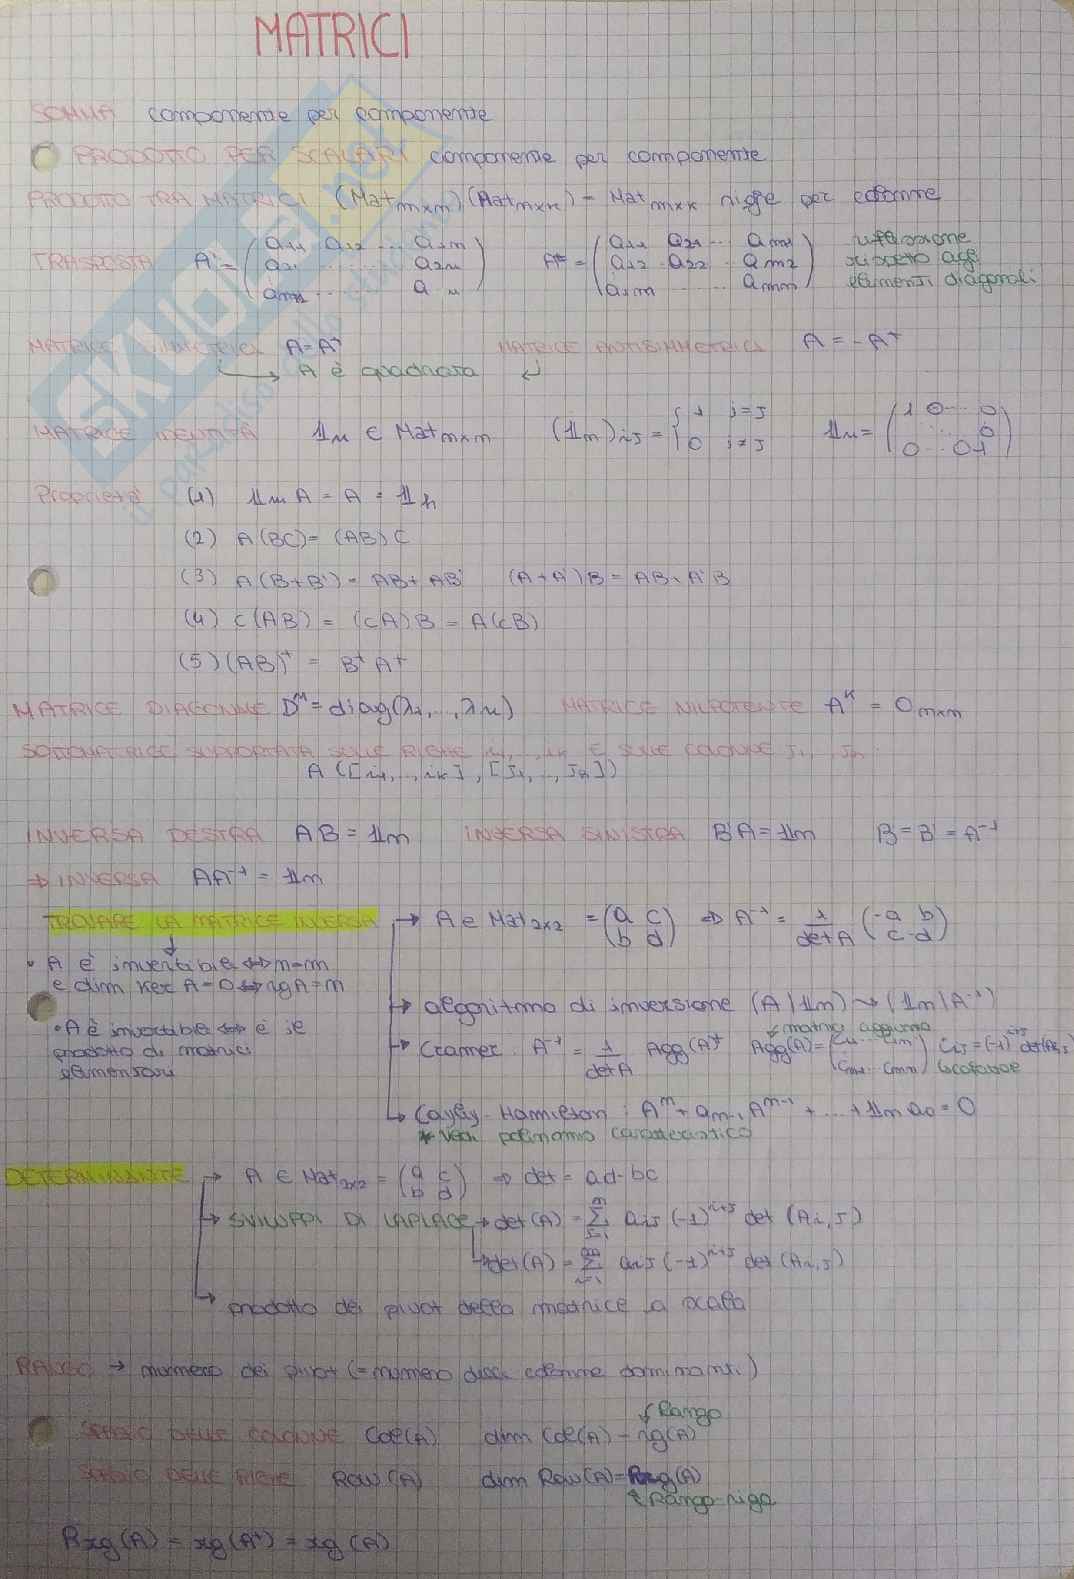 MATRICI
SOMMA componente per componente
PRODOTTO PER SCALARI componente per componente
PRODOTTO TRA MATRICI (Mat m×n)(Mat n×k) = Mat m×k righe per colonne
TRASPOSTA A = (a11 a12 ... a1n / a21 ... a2n / am1 ...) A^t = (a11 a21 ... am1 / a12 a22 ... am2 / a1n ... amn) riflessione rispetto agli elementi diagonali
MATRICE SIMMETRICA A = A^t MATRICE ANTISIMMETRICA A = -A^t
→ A è quadrata ↵
MATRICE IDENTITÀ 𝟙n ∈ Mat n×n (𝟙n)ij = { 1 i=j / 0 i≠j 𝟙n = (1 0 ... 0 / ... 0 / 0 ... 0 1)
Proprietà (1) 𝟙m A = A = 𝟙n
(2) A(BC) = (AB)C
(3) A(B+B') = AB + AB' (A+A')B = AB + A'B
(4) c(AB) = (cA)B = A(cB)
(5) (AB)^t = B^t A^t
MATRICE DIAGONALE D^n = diag(λ1,...,λn) MATRICE NILPOTENTE A^k = 0 n×n
SOTTOMATRICE SUPPORTATA SULLE RIGHE i1, ..., ik E SULLE COLONNE J1, ..., Jh
A([i1,...,ik],[J1,...,Jh])
INVERSA DESTRA AB = 𝟙m INVERSA SINISTRA B'A = 𝟙m B = B' = A^-1
⇒ INVERSA AA^-1 = 𝟙m
TROVARE LA MATRICE INVERSA → A ∈ Mat 2×2 = (a c / b d) ⇒ A^-1 = 1/det A (-a b / c -d)
• A è invertibile ⇔ n=m
e dim Ker A = 0 ⇔ rg A = m
→ algoritmo di inversione (A|𝟙m) ⇝ (𝟙m|A^-1)
• A è invertibile ⇔ è il
prodotto di matrici
elementari
↙ matrice aggiunta
→ Cramer: A^-1 = 1/det A Agg(A)^t Agg(A) = (c11 ... c1n / cm1 ... cmn) cij = (-1)^i+j det(Ai,j)
↳ cofattore
→ Cayley-Hamilton: A^n + an-1 A^n-1 + ... + 𝟙n a0 = 0
* vedi polinomio caratteristico
DETERMINANTE → A ∈ Mat 2×2 = (a c / b d) ⇒ det = ad-bc
→ SVILUPPI DI LAPLACE → det(A) = Σ j=1 aij (-1)^i+j det(Ai,j)
→ det(A) = Σ i=1 aij (-1)^i+j det(Ai,j)
→ prodotto dei pivot della matrice a scala
RANGO → numero dei pivot (= numero delle colonne dominanti)
↙ Rango
SPAZIO DELLE COLONNE Col(A) dim Col(A) = rg(A)
SPAZIO DELLE RIGHE Row(A) dim Row(A) = Rrg(A)
↖ Rango-riga
Rrg(A) = rg(A^t) = rg(A)
SKUOLA.net
il paradiso dello studente